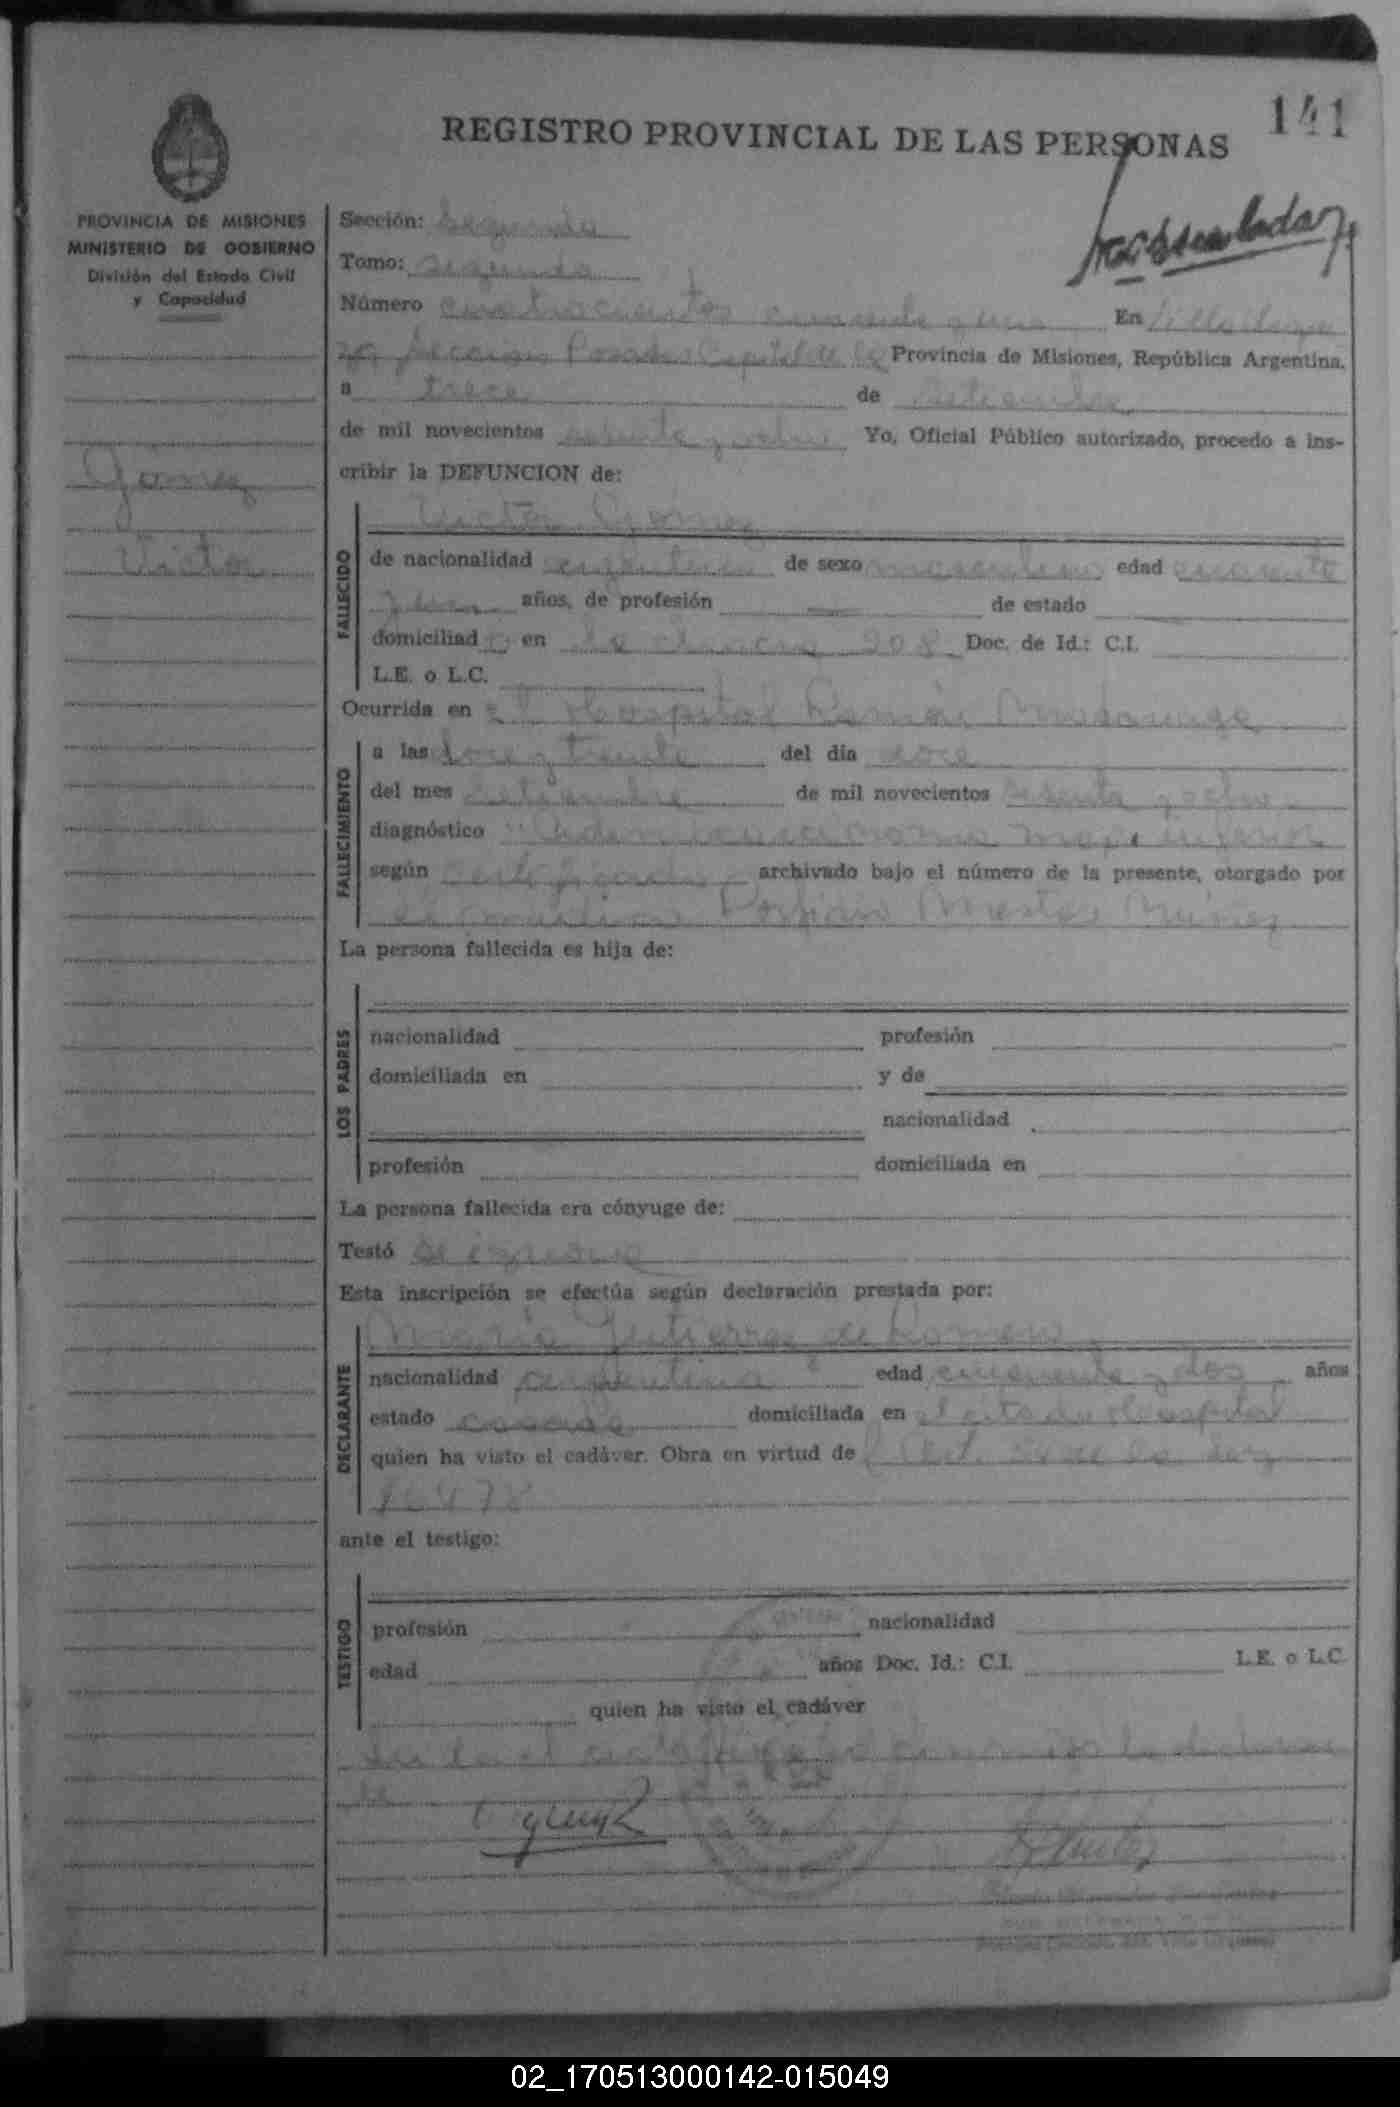 141
REGISTRO PROVINCIAL DE LAS PERSONAS
PROVINCIA DE MISIONES
MINISTERIO DE GOBIERNO
División del Estado Civil
y Capacidad
Gomez
Victor
Sección: Segunda
Tomo: Segundo
Número cuatrocientos cincuenta y uno En Villa Urquiza
Sección Posadas Capital de la Provincia de Misiones, República Argentina,
a trece de setiembre
de mil novecientos sesenta y ocho Yo, Oficial Público autorizado, procedo a ins-
cribir la DEFUNCION de:
FALLECIDO
Victor Gomez
de nacionalidad argentina de sexo masculino edad cincuenta
y años, de profesión — de estado
domiciliado en la chacra 208 Doc. de Id.: C.I.
L.E. o L.C.
Ocurrida en el Hospital Ramón Madariaga
FALLECIMIENTO
a las doce y treinta del día doce
del mes setiembre de mil novecientos sesenta y ocho
diagnóstico "Adenocarcinoma max. inferior
según certificado archivado bajo el número de la presente, otorgado por
el Porfirio Mestas Nuñez
La persona fallecida es hija de:
LOS PADRES
nacionalidad profesión
domiciliada en y de
nacionalidad
profesión domiciliada en
La persona fallecida era cónyuge de:
Testó se ignora
Esta inscripción se efectúa según declaración prestada por:
DECLARANTE
Maria Gutierrez de Romero
nacionalidad argentina edad cincuenta y dos años
estado casada domiciliada en el citado Hospital
quien ha visto el cadáver. Obra en virtud de Art. de la Ley
16478
ante el testigo:
TESTIGO
profesión nacionalidad
edad años Doc. Id.: C.I. L.E. o L.C.
quien ha visto el cadáver
Leida el acta la declaran
te
02_170513000142-015049